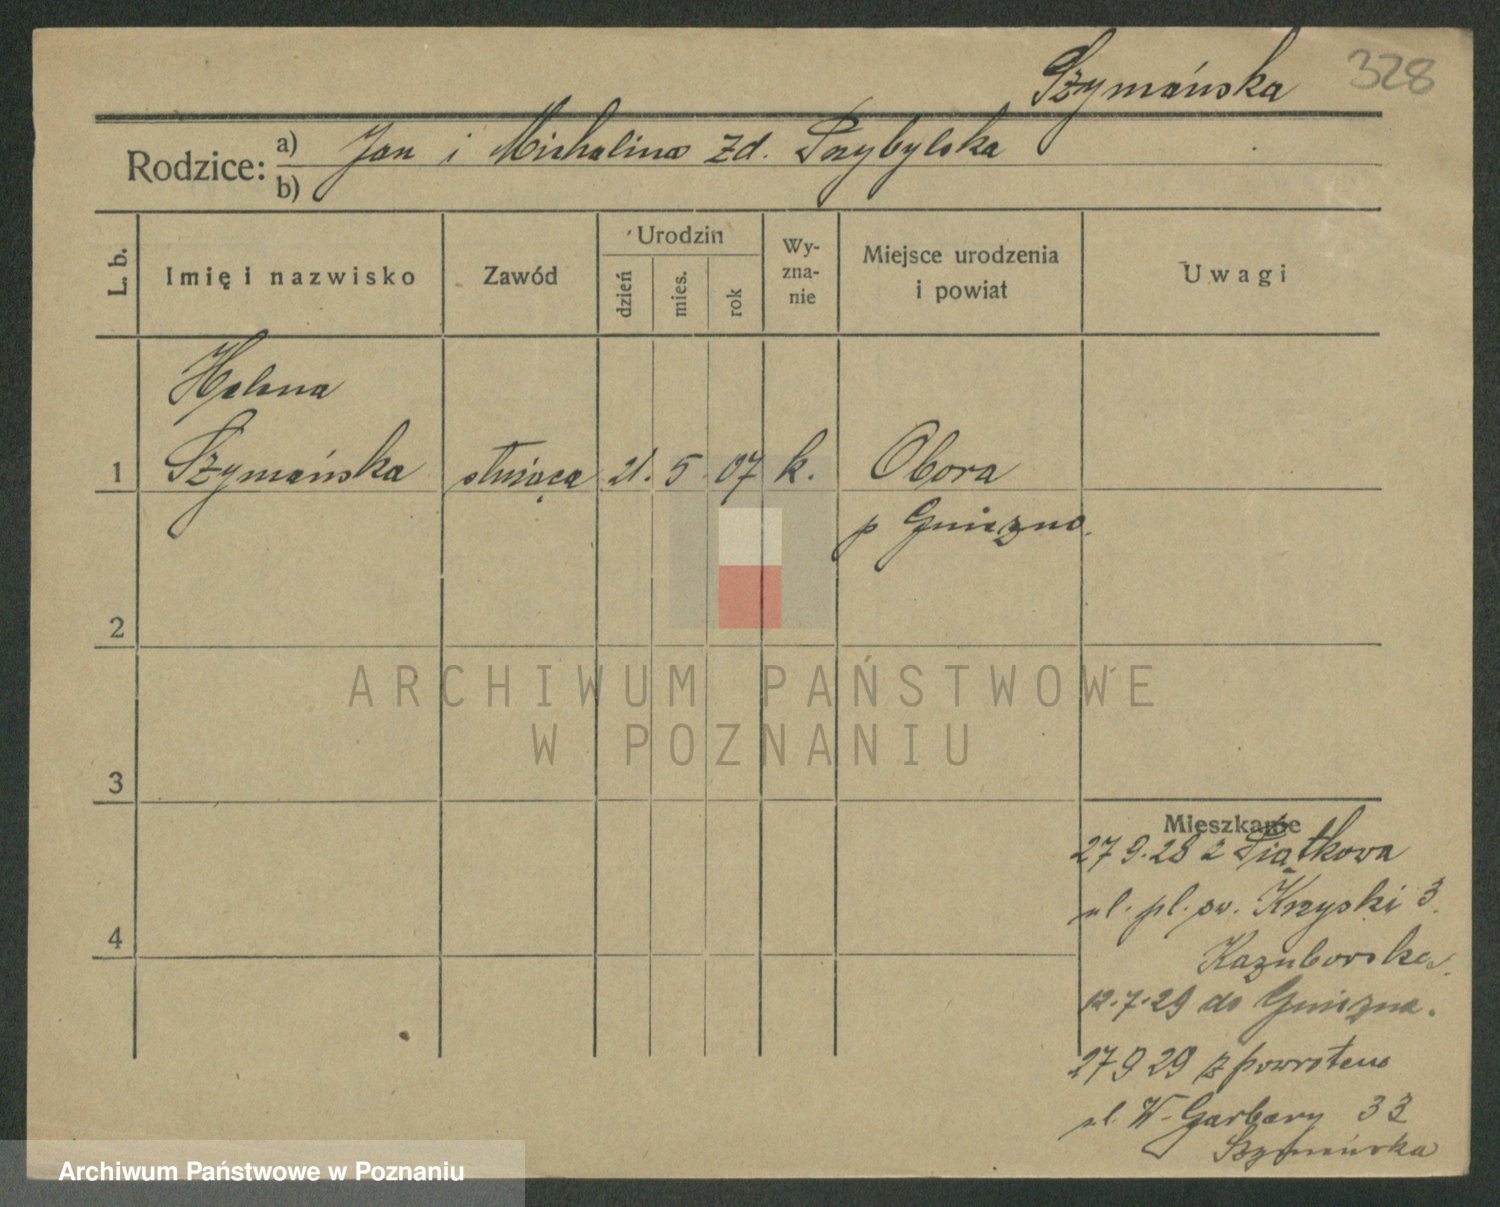 Szymańska 328
Rodzice: a) Jan i Michalina zd. Przybylska
b)
L. b. Imię i nazwisko Zawód Urodzin dzień mies. rok Wy-zna-nie Miejsce urodzenia i powiat Uwagi
Helena
1 Szymańska służąca 21. 5 07 k. Obora
p Gniezno.
2
ARCHIWUM PAŃSTWOWE
W POZNANIU
3
Mieszkanie
27 9. 28 z Piątkowa
ul. pl. św. Krzyski 3.
12.7.29 do Gniezna.
4
27 9 29 z powrotem
ul. W. Garbary 33
Szymańska
Archiwum Państwowe w Poznaniu